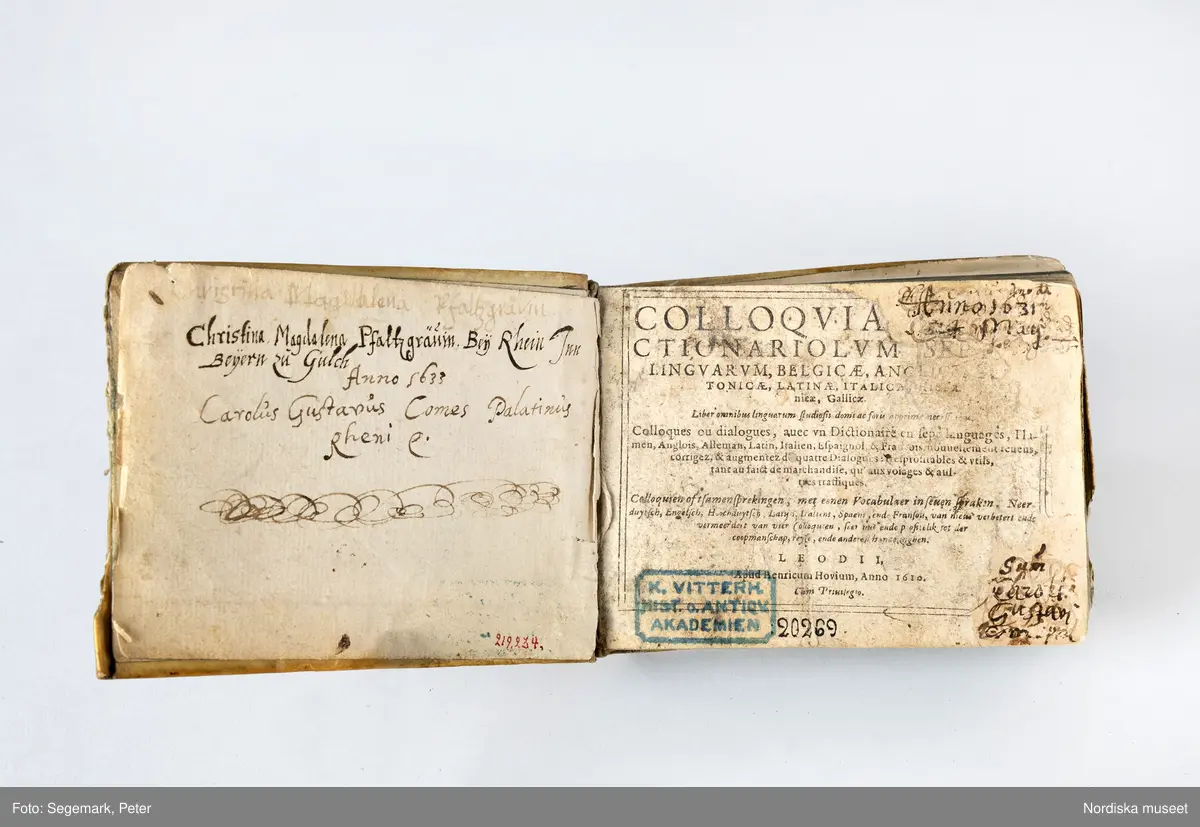 Christina Magdalena Pfaltzgrävin
Christina Magdalena Pfaltzgrävin. Beÿ Rhein Inn
Beÿern zu Gulch
Anno 1633
Carolus Gustavus Comes Palatinus
Rheni &.
219,234.
Anno 1631
May
COLLOQVIA
CTIONARIOLVM
LINGVARVM, BELGICÆ,
TONICÆ, LATINÆ,
nicæ, Gallicæ.
Liber omnibus linguarum studiosis domi ac foris
Colloques ou dialogues, auec vn Dictionaire en sept languages, Fla-
men, Anglois, Alleman, Latin, Italien, Espaignol, & François, nouuellement reueus,
corrigez, & augmentez de quatre Dialogues, tresprofitables & vtils,
tant au faict de marchandise, qu'aux voiages & aul-
tres traffiques.
Colloquien oft tsamensprekingen, met eenen Vocabulaer in seuen spraken. Neer-
duytsch, Engelsch, Hoochduytsch, Latyn, Italiens, Spaens, ende Fransois, van nieus verbetert ende
vermeerdert van vier Colloquien, seer nut ende profitelik tot der
coopmanschap, reyse, ende anderen
LEODII,
Apud Henricum Hovium, Anno 1610.
Cum Privilegio.
K. VITTERH.
HIST. o. ANTIQV.
AKADEMIEN
20269.
Sum
Caroli
Gustavi
Com. Pal
Foto: Segemark, Peter
Nordiska museet